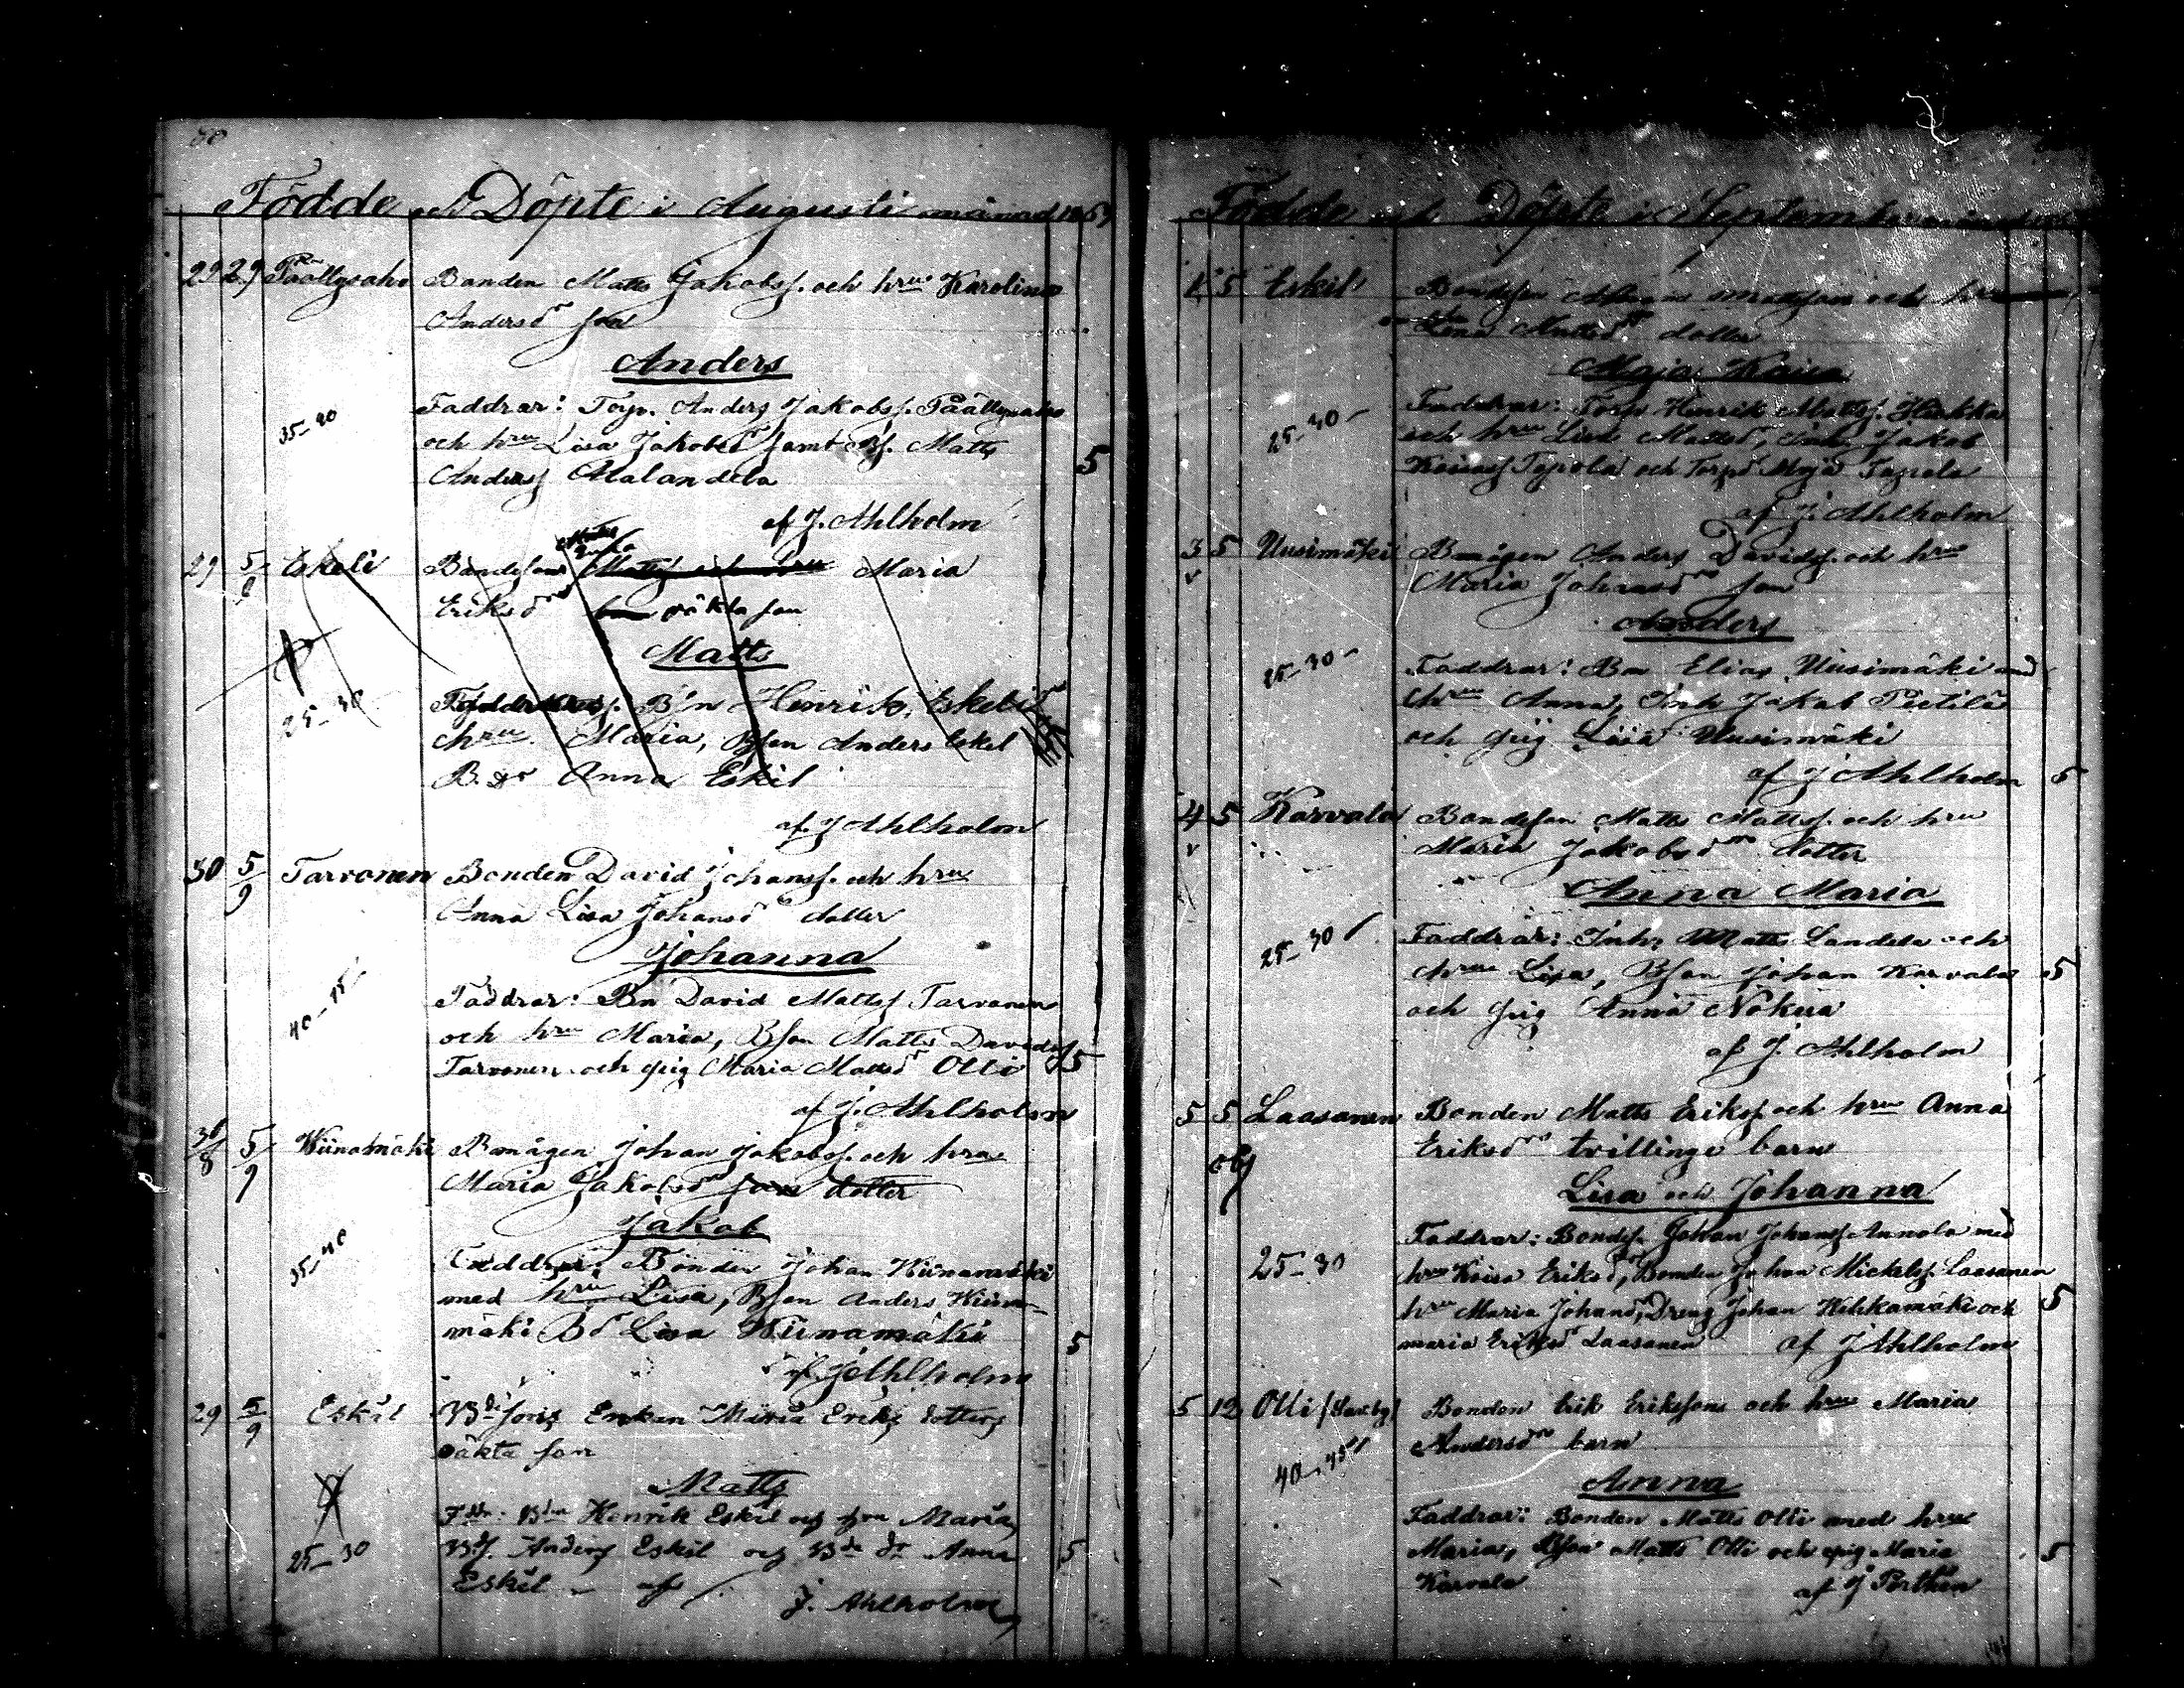 Födde och Döpte i Augusti månad
29 29 Päällysaho Bonden Matts Jakobss. och hru Karolina
Andersdr son
Anders
35–40 Faddrar: Torp. Anders Jakobss. Päällysaho
och hru Lisa Jakobsdr samt Matts
Anderss Alalandela 5
af J. Ahlholm
29 5/9 Eskeli Bondeson Matts och hru Maria
Eriksdr oäkta son
Matts
25–30 Bn Henrik Eskeli
hru Maria, Bson Anders Eskel
B. dr Anna Eskil
af J Ahlholm
30 5/9 Tarvonen Bonden David Johanss. och hru
Anna Lisa Johansdr dotter
Johanna
40–45 Faddrar: Bn David Mattss Tarvonen
och hru Maria, Bson Matts Davidss
Tarvonen och pig Maria Mattsdr Olli 5
af J. Ahlholm
30/8 5/9 Wiinamäki Bmågen Johan Jakobss. och hru
Maria Jakobsdr son dotter
Jakob
35–40 Faddrar: Bonden Johan Wiinamäki
med hru Lisa, Bson Anders Wiina-
mäki Bdr Lisa Wiinamäki 5
af J Ahlholm
29 5/9 Eskil Enkan Maria Eriks dotters
oäkta son
Matts
Henrik Eskil och hru Maria,
25–30 Anders Eskil och Anna 5
Eskil af
J. Ahlholm
Födde och Döpte i September
1 5 Eskil Bondeson Mattsson och hru
Lena Mattsdr dotter
Maja Kaisa
25–30 Faddrar: Torp Henrik Mattss. Hukka
och hru Lisa Mattsdr, Jakob
Tapola och Maja Tapola
af J. Ahlholm
3 5 Uusimäki Bmågen Anders Davidss. och hru
Maria Johansdr son
Anders
25–30 Faddrar: Bn Elias Uusimäki med
hru Anna, Inh Jakob Pietilä
och pig Lisa Uusimäki
af J Ahlholm 5
4 5 Karvala Bondeson Matts Mattss. och hru
Maria Jakobsdr dotter
Anna Maria
25–30 Faddrar: Inh. Matts Landela och
hru Lisa, Bson Johan Karvala 5
och pig Anna Nokua
af J. Ahlholm
5 5 Laasanen Bonden Matts Erikss. och hru Anna
Eriksdr tvillinge barn
Lisa och Johanna
Faddrar: Bondes. Johan Johanss Annala med
25–30 hru Kaisa Eriksdr, Bonden Johan Mickelss. Laasanen
hru Maria Johansdr, Dreng Johan Hihkamäki och 5
maria Eriksdr Laasanen af J Ahlholm
5 12 Olli Bonden Erik Eriksson och hru Maria
Andersdr barn
40–45 Anna
Faddrar: Bonden Matts Olli med hru
Maria, Bson Matts Olli och pig Maria 5
Karvala af J Porthén